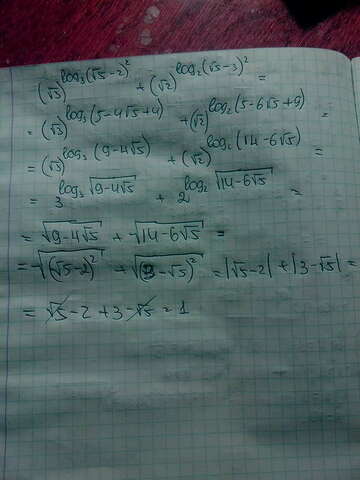 (√3)^log₃(√5-2)² + (√2)^log₂(√5-3)² =
= (√3)^log₃(5-4√5+4) + (√2)^log₂(5-6√5+9) =
= (√3)^log₃(9-4√5) + (√2)^log₂(14-6√5) =
= 3^log₃√(9-4√5) + 2^log₂√(14-6√5) =
= √(9-4√5) + √(14-6√5) =
= √((√5-2)²) + √((3-√5)²) = |√5-2| + |3-√5| =
= √5-2+3-√5 = 1